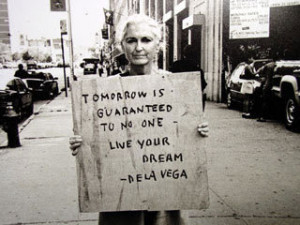 TOMORROW IS -
GUARANTEED
TO NO ONE -
LIVE YOUR
DREAM
-DELA VEGA